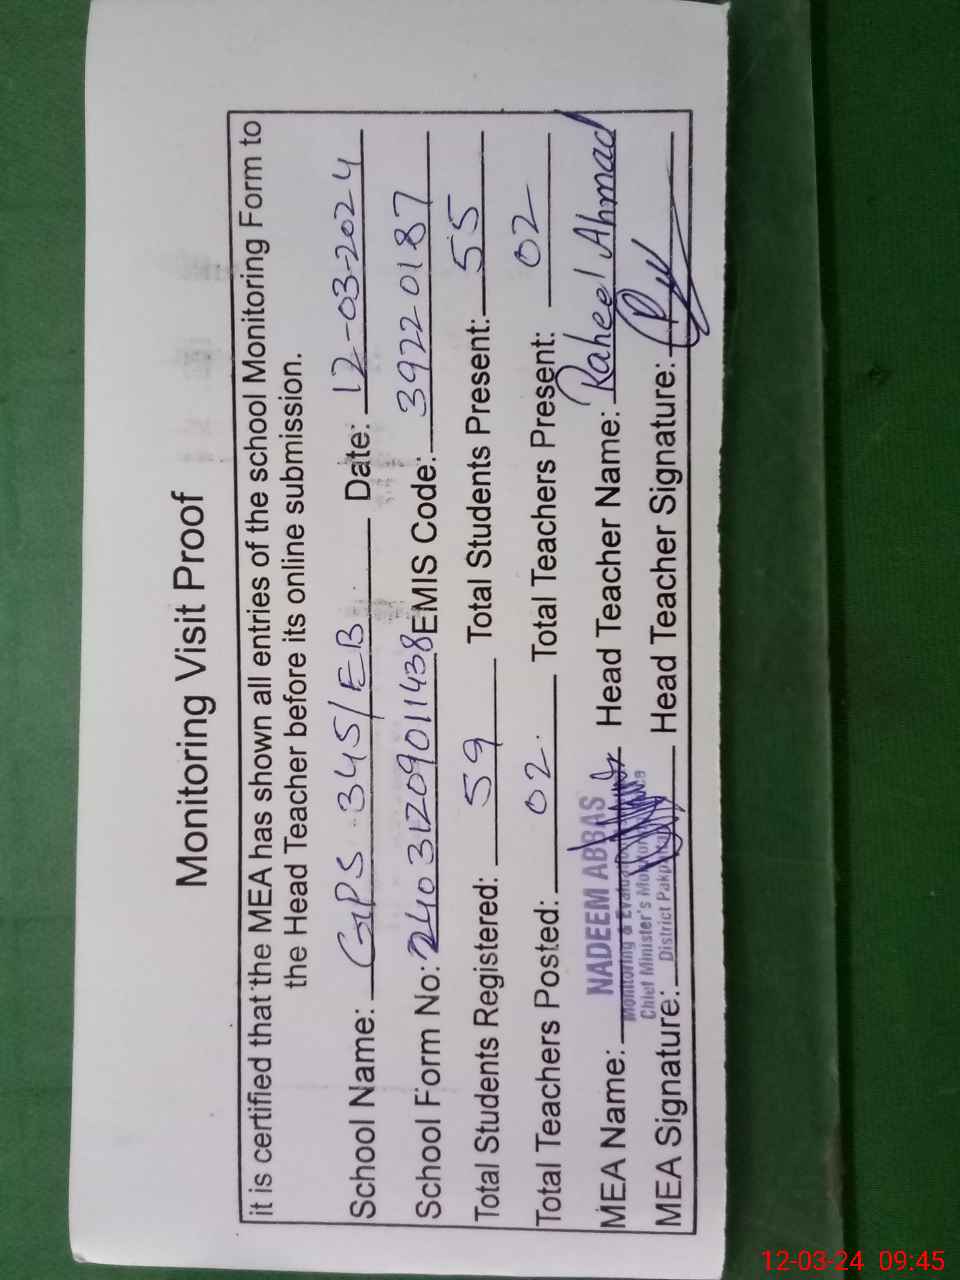 Monitoring Visit Proof
it is certified that the MEA has shown all entries of the school Monitoring Form to
the Head Teacher before its online submission.
School Name: GPS 345/EB Date: 12-03-2024
School Form No: 24031209011438 EMIS Code: 39220187
Total Students Registered: 59 Total Students Present: 55
Total Teachers Posted: 02 Total Teachers Present: 02
MEA Name: NADEEM ABBAS Head Teacher Name: Raheel Ahmad
Monitoring & Evaluation
Chief Minister's
MEA Signature: District Head Teacher Signature:
12-03-24 09:45